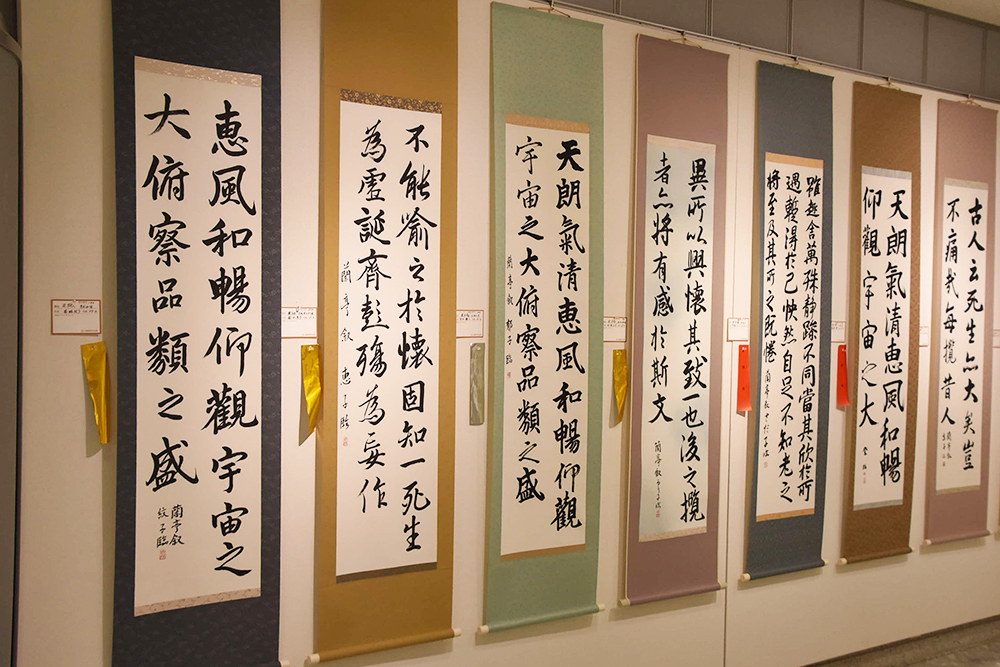 恵風和暢仰觀宇宙之
大俯察品類之盛
蘭亭叙
紋子臨
不能喻之於懷固知一死生
為虚誕齊彭殤為妄作
蘭亭叙 恵子臨
天朗氣清恵風和暢仰觀
宇宙之大俯察品類之盛
蘭亭叙 子臨
異所以興懷其致一也後之攬
者亦将有感於斯文
蘭亭叙
雖趣舍萬殊静躁不同當其欣於所
遇蹔得於己怏然自足不知老之
将至及其所之既惓
蘭亭叙
天朗氣清恵風和暢
仰觀宇宙之大
古人云死生亦大矣豈
不痛哉每攬昔人
蘭亭叙